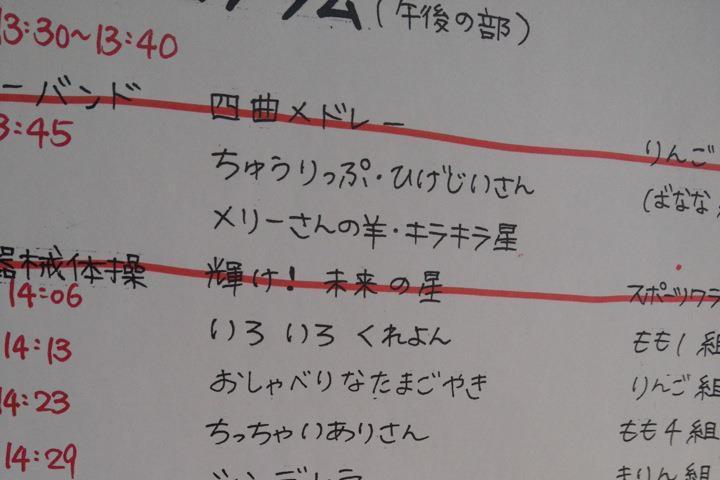 ラム(午後の部)
13:30~13:40
ーバンド 四曲メドレー りんご
3:45 ちゅうりっぷ・ひげじいさん (ばなな
メリーさんの羊・キラキラ星
器械体操 輝け! 未来の星 スポーツクラ
14:06 いろ いろ くれよん もも1組
14:13 おしゃべりなたまごやき りんご組
14:23 ちっちゃいありさん もも4組
14:29 シンデレラ きりん組